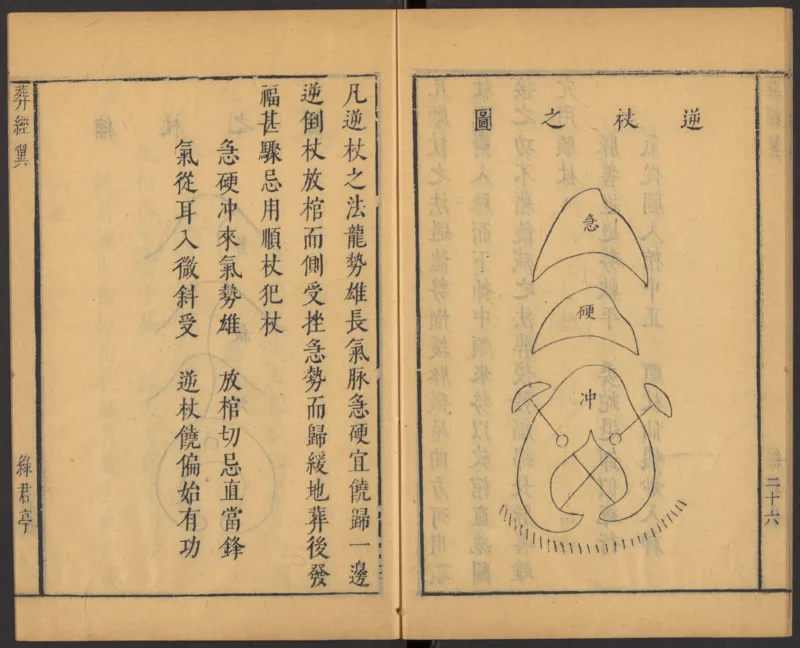 逆杖之圖
急
硬
冲
二十六
凡逆杖之法龍勢雄長氣脉急硬宜饒歸一邊
逆倒杖放棺而側受挫急勢而歸緩地葬後發
福甚驟忌用順杖犯杖
急硬冲來氣勢雄　放棺切忌直當鋒
氣從耳入微斜受　逆杖饒偏始有功
葬經翼
綠君亭